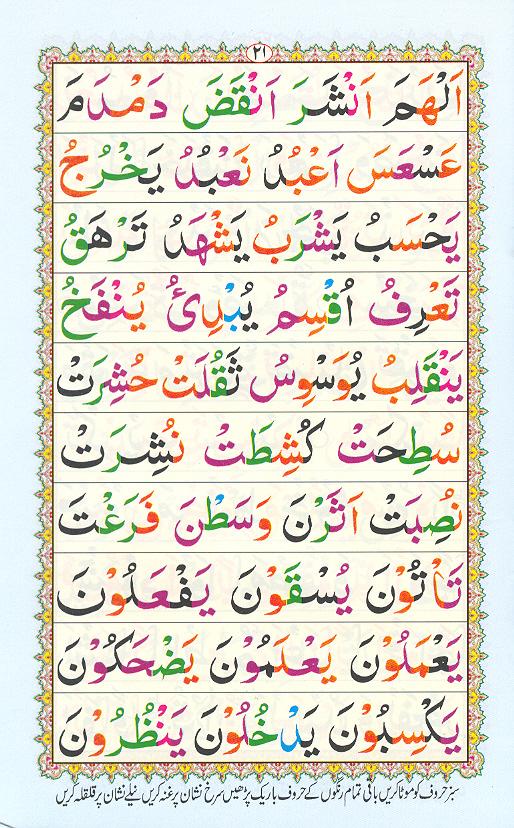 ۲۱
اَلْهَمَ اَنْشَرَ اَنْقَضَ دَمْدَمَ
عَسْعَسَ اَعْبُدُ نَعْبُدُ يَخْرُجُ
يَحْسَبُ يَشْرَبُ يَشْهَدُ تَرْهَقُ
تَعْرِفُ اُقْسِمُ يُبْدِئُ يُنْفَخُ
يَنْقَلِبُ يُوَسْوِسُ ثَقُلَتْ حُشِرَتْ
سُطِحَتْ كُشِطَتْ نُشِرَتْ
نُصِبَتْ اَثَرْنَ وَسَطْنَ فَرَغْتَ
تَاْتُوْنَ يُسْقَوْنَ يَفْعَلُوْنَ
يَعْمَلُوْنَ يَعْلَمُوْنَ يَضْحَكُوْنَ
يَكْسِبُوْنَ يَدْخُلُوْنَ يَنْظُرُوْنَ
سبز حروف کو موٹا کریں باقی تمام رنگوں کے حروف باریک پڑھیں سرخ نشان پر غنہ کریں نیلے نشان پر قلقلہ کریں